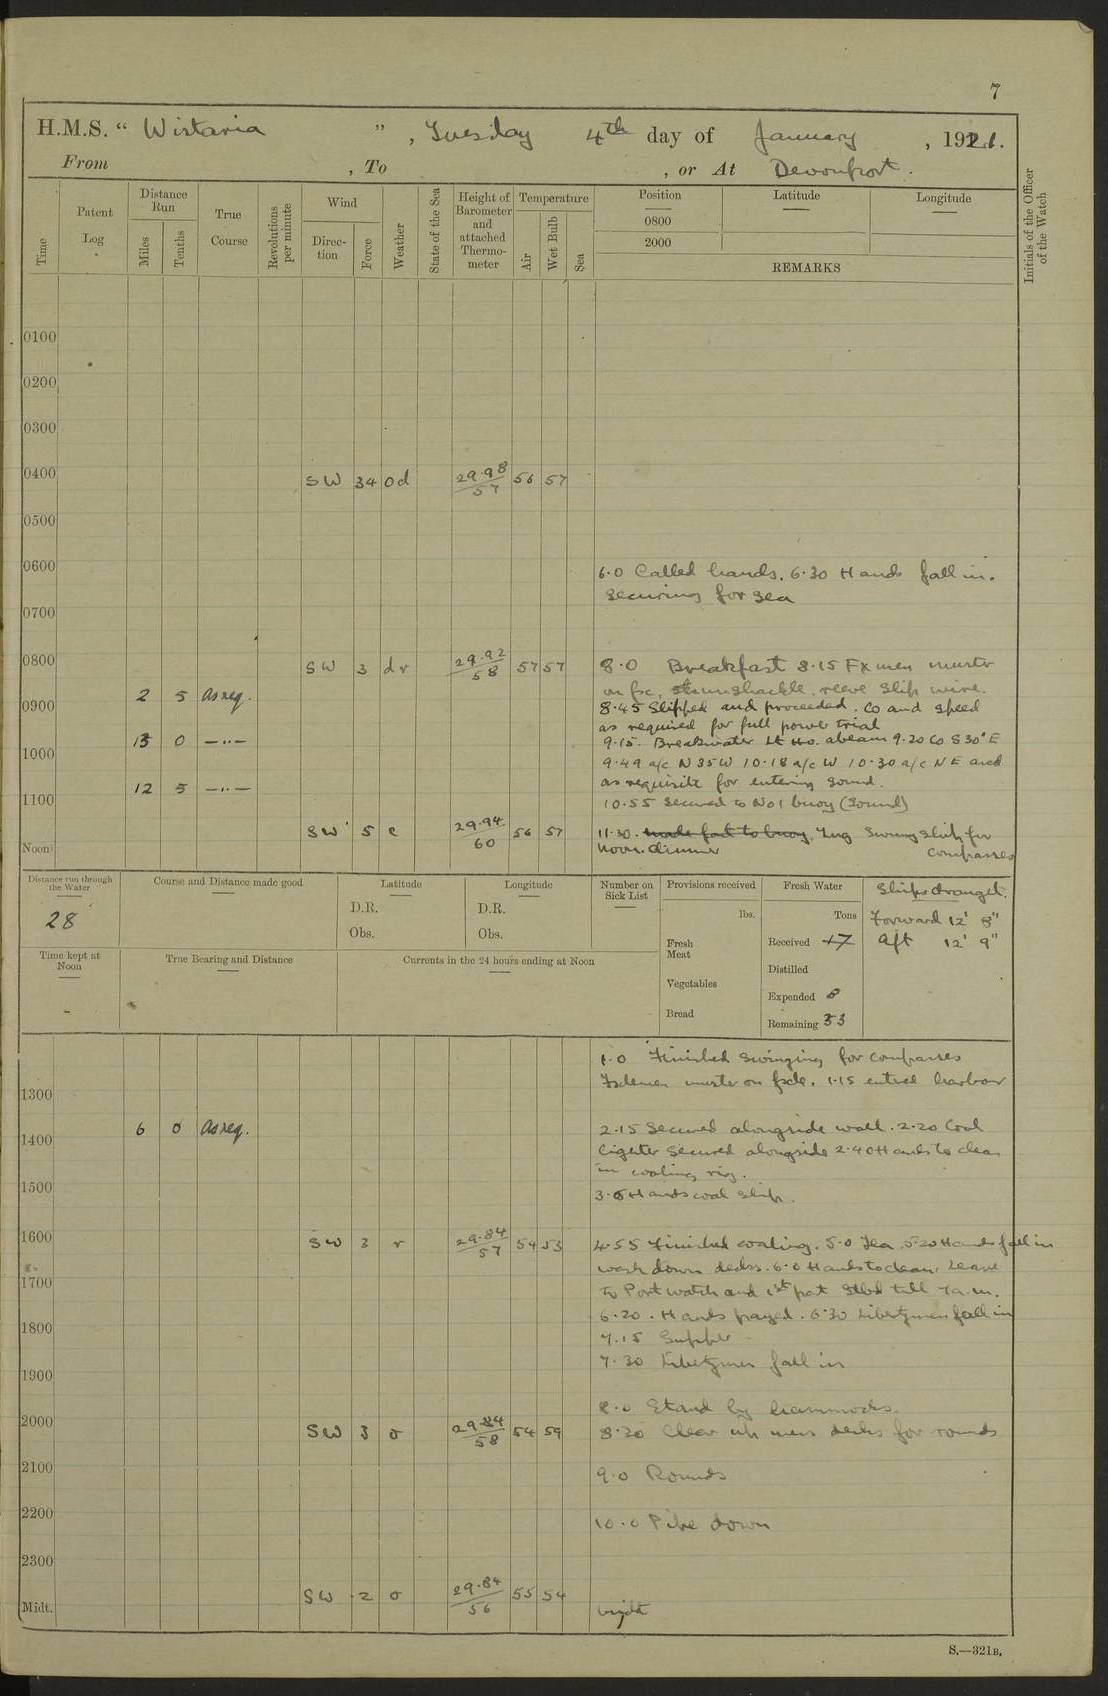 7
H.M.S. “ Wistaria ” , Tuesday 4th day of January , 1921.
From , To , or At Devonport.
Time
Patent Log
Distance Run
Miles
Tenths
True Course
Revolutions per minute
Wind
Direc-tion
Force
Weather
State of the Sea
Height of Barometer and attached Thermo-meter
Temperature
Air
Wet Bulb
Sea
Position
Latitude
Longitude
0800
2000
REMARKS
Initials of the Officer of the Watch
0100
0200
0300
0400 SW 34 od 29.98/57 56 57
0500
0600
6.0 Called hands. 6.30 Hands fall in.
securing for sea
0700
0800 SW 3 dr 29.92/58 57 57
8.0 Breakfast 8.15 Fx men muster
on fxc, unshackle, reeve slip wire.
2 5 As req.
0900
8.45 Slipped and proceeded. Co and speed
as required for full power trial
13 0 —..—
9.15. Breakwater Lt Ho. abeam 9.20 Co S 30° E
1000
9.49 a/c N 35 W 10.18 a/c W 10.30 a/c NE and
12 5 —..—
as requisite for entering sound.
1100
10.55 Secured to No 1 buoy (Sound)
SW 5 c 29.94/60 56 57
11.30. made fast to buoy. Tug swung ship for
Noon
Noon. dinner compasses
Distance run through the Water
28
Course and Distance made good
Latitude
D.R.
Obs.
Longitude
D.R.
Obs.
Number on Sick List
Provisions received
lbs.
Fresh Meat
Vegetables
Bread
Fresh Water
Tons
Received 17
Distilled
Expended 8
Remaining 33
Ships draught.
Forward 12' 8"
Aft 12' 9"
Time kept at Noon
True Bearing and Distance
Currents in the 24 hours ending at Noon
1.0 Finished swinging for compasses
muster on fxle. 1.15 entered harbour
1300
6 0 As req.
2.15 Secured alongside wall. 2.20 Coal
1400
lighter secured alongside 2.40 Hands to clean
in coaling rig.
1500
3.0 Hands coal ship.
1600 SW 3 r 29.84/57 54 53
4.55 Finished coaling. 5.0 Tea. 5.20 Hands fall in
wash down decks. 6.0 Hands to clean. Leave
1700
to Port watch and 1st part Stbd till 7 a.m.
6.20. Hands payed. 6.30 Libertymen fall in
1800
7.15 Supper
7.30 Libertymen fall in
1900
8.0 Stand by hammocks.
2000 SW 3 o 29.84/58 54 59
8.20 Clear up mess decks for rounds
2100
9.0 Rounds
2200
10.0 Pipe down
2300
SW 2 o 29.84/56 55 54
Midt.
midt
S.—321B.